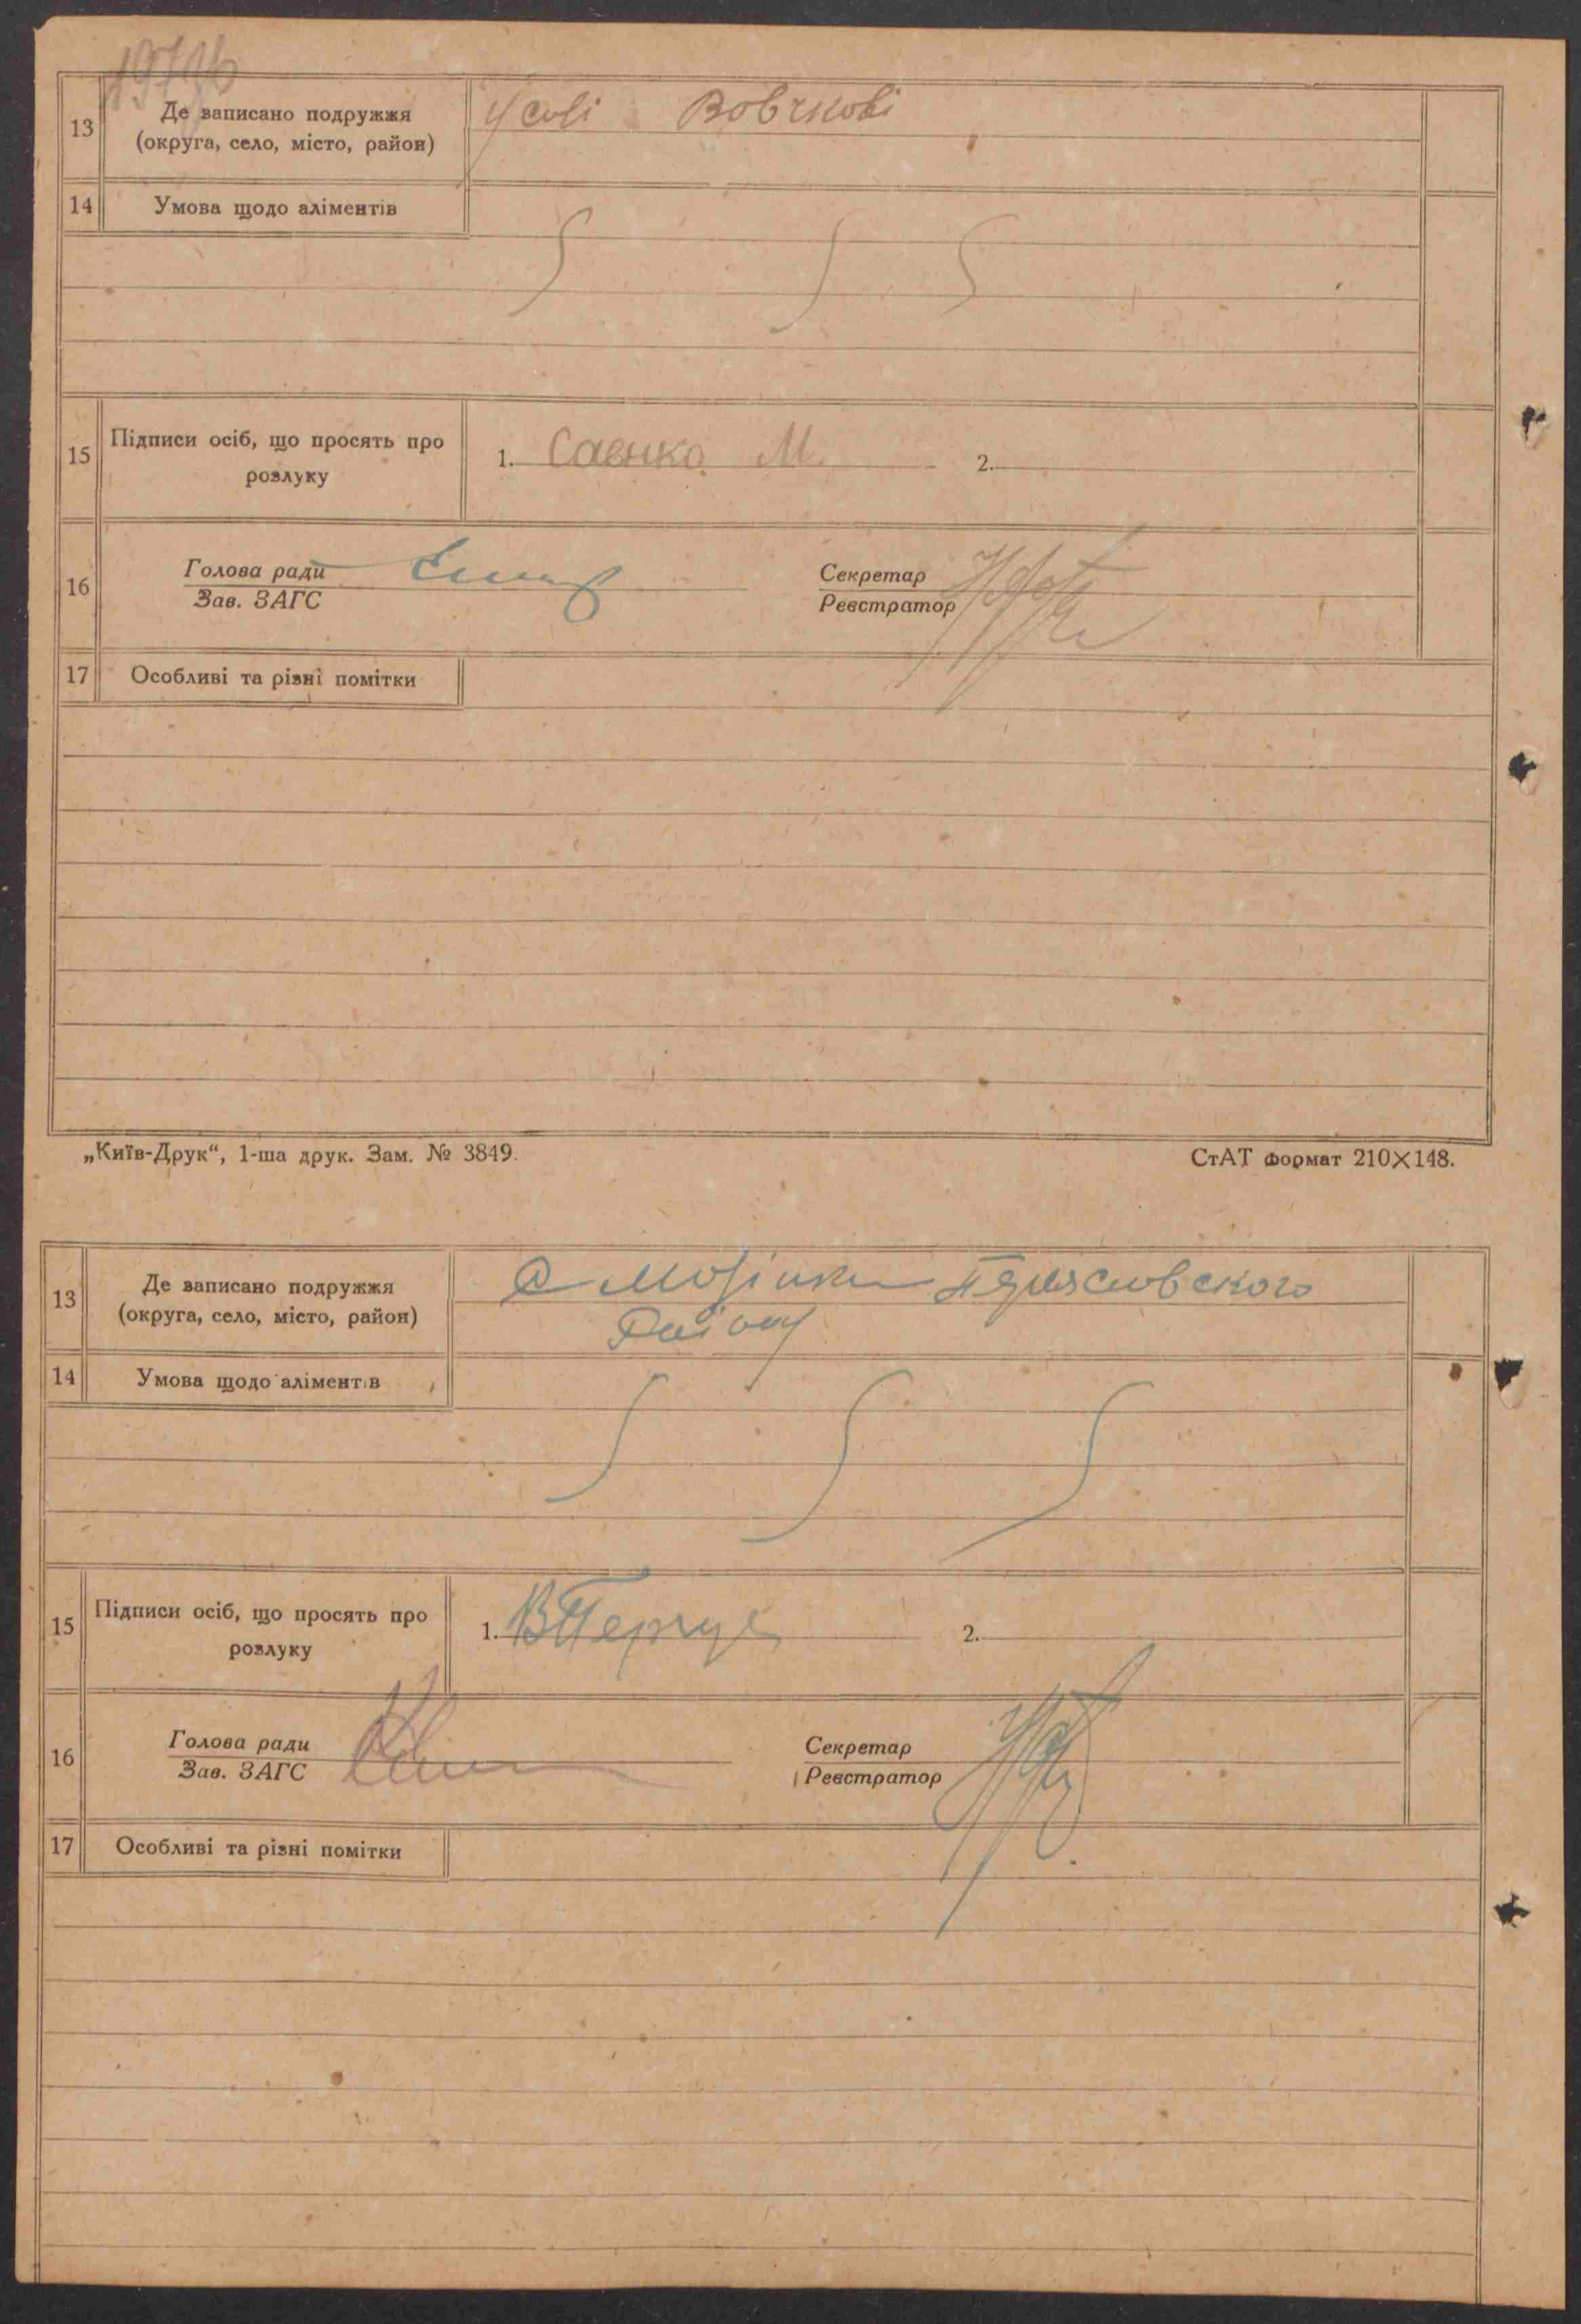 13
Де записано подружжя
(округа, село, місто, район)
У селі Вовчкові
14
Умова щодо аліментів
15
Підписи осіб, що просять про
розлуку
1. Саенко М.
2.
16
Голова ради
Зав. ЗАГС
Секретар
Реєстратор
17
Особливі та різні помітки
„Київ-Друк“, 1-ша друк. Зам. № 3849.
СтАТ формат 210×148.
13
Де записано подружжя
(округа, село, місто, район)
Району
14
Умова щодо аліментів
15
Підписи осіб, що просять про
розлуку
1.
2.
16
Голова ради
Зав. ЗАГС
Секретар
Реєстратор
17
Особливі та різні помітки